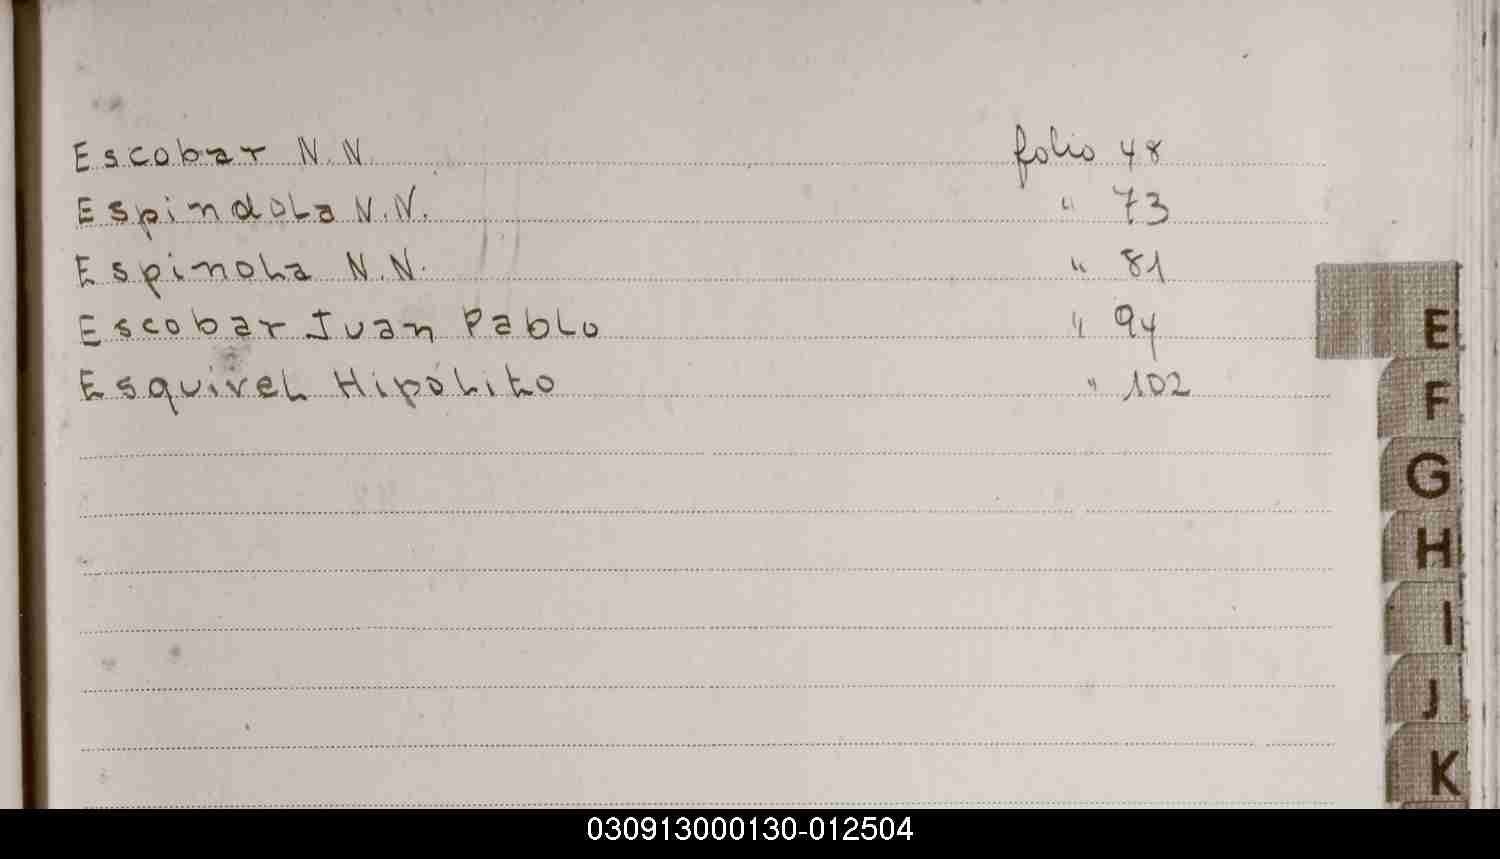 Escobar N.N. folio 48
Espindola N.N. " 73
Espinola N.N. " 81
Escobar Juan Pablo " 94
Esquivel Hipólito " 102
E
F
G
H
I
J
K
030913000130-012504